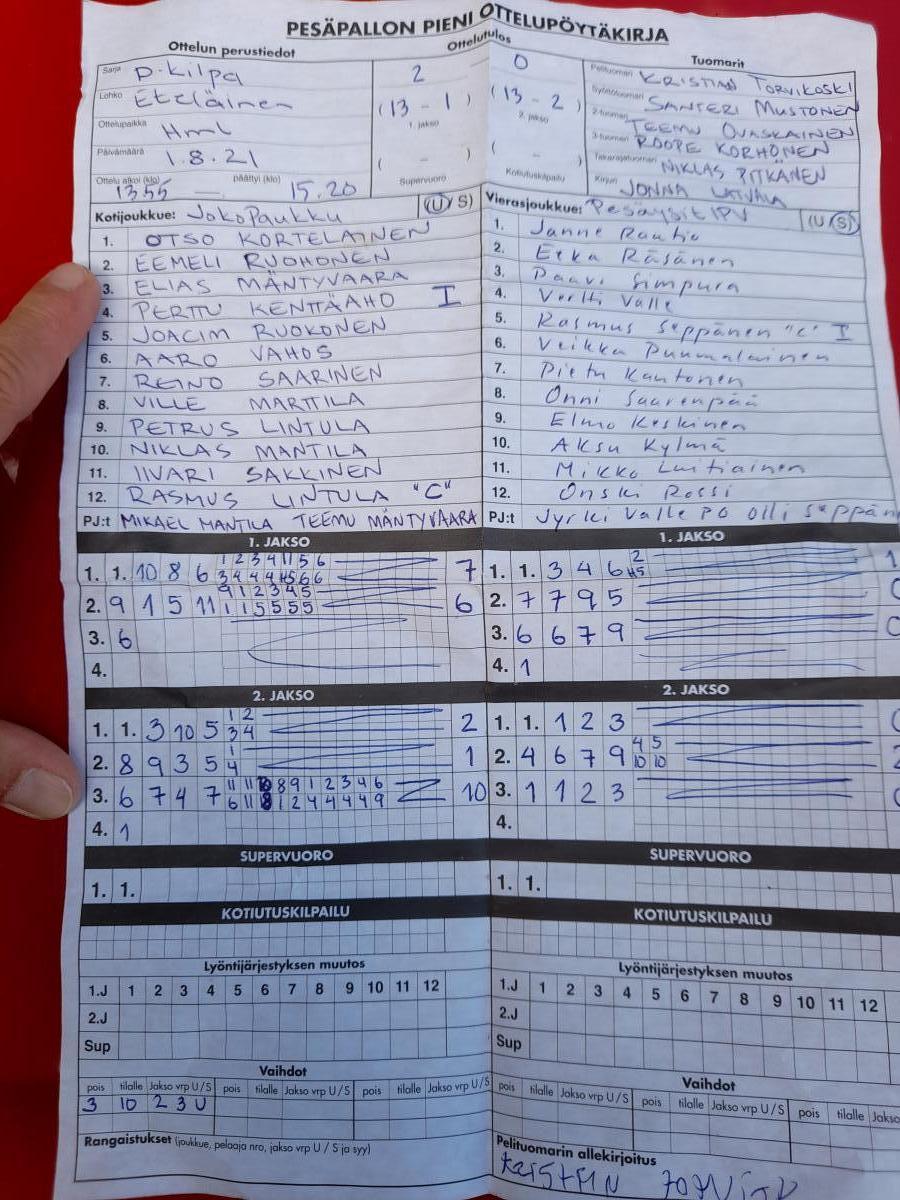 PESÄPALLON PIENI OTTELUPÖYTÄKIRJA
Ottelun perustiedot
Ottelutulos
Tuomarit
Sarja D-Kilpa
2 0
Pelituomari KRISTIAN TORVIKOSKI
Lohko Eteläinen
(13 - 1) (13 - 2)
1. jakso 2. jakso
Syöttötuomari SANTERI MUSTONEN
Ottelupaikka Hml
2-tuomari TEEMU OVASKAINEN
3-tuomari ROOPE KORHONEN
Päivämäärä 1.8.21
( - ) ( - )
Takarajatuomari NIKLAS PITKÄNEN
Ottelu alkoi (klo) 1355 — päättyi (klo) 15.20
Supervuoro Kotiutuskilpailu
Kirjuri JONNA LATVALA
Kotijoukkue: JoKoPaukku (U/S)
1. OTSO KORTELAINEN
2. EEMELI RUOHONEN
3. ELIAS MÄNTYVAARA
4. PERTTU KENTTÄAHO I
5. JOACIM RUOKONEN
6. AARO VAHOS
7. REINO SAARINEN
8. VILLE MARTTILA
9. PETRUS LINTULA
10. NIKLAS MANTILA
11. IIVARI SAKKINEN
12. RASMUS LINTULA "C"
PJ:t MIKAEL MANTILA TEEMU MÄNTYVAARA
Vierasjoukkue: Pesäysit IPV (U/S)
1. Janne Rautio
2. Eeka Räsänen
3. Paavi Simpura
4. Verlti Valle
5. Rasmus Seppänen "C" I
6. Veikka Puumalainen
7. Pietu Kantonen
8. Onni Saarenpää
9. Elmo Keskinen
10. Aksu Kylmä
11. Mikko Luitiainen
12. Onski Rossi
PJ:t Jyrki Valle PO Olli Seppän
1. JAKSO
1. 1. 10 8 6 1 2 3 4 11 5 6 7
3 4 4 4 11 5 6 6
2. 9 1 5 11 9 1 2 3 4 5 6
1 1 5 5 5 5
3. 6
4.
1. JAKSO
1. 1. 3 4 6 2 1
2. 7 7 9 5 0
3. 6 6 7 9 0
4. 1
2. JAKSO
1. 1. 3 10 5 1 2 2
3 4
2. 8 9 3 5 1 1
4
3. 6 7 4 7 11 11 10 8 9 1 2 3 4 6 10
6 11 8 1 2 4 4 4 4 9
4. 1
2. JAKSO
1. 1. 1 2 3 0
2. 4 6 7 9 4 5 2
10 10
3. 1 1 2 3 0
4.
SUPERVUORO
1. 1.
SUPERVUORO
1. 1.
KOTIUTUSKILPAILU
KOTIUTUSKILPAILU
Lyöntijärjestyksen muutos
1.J 1 2 3 4 5 6 7 8 9 10 11 12
2.J
Sup
Lyöntijärjestyksen muutos
1.J 1 2 3 4 5 6 7 8 9 10 11 12
2.J
Sup
Vaihdot
pois tilalle Jakso vrp U/S pois tilalle Jakso vrp U/S pois tilalle Jakso vrp U/S
3 10 2 3 U
Vaihdot
pois tilalle Jakso vrp U/S pois tilalle Jakso vrp U/S pois tilalle Jakso
Rangaistukset (joukkue, pelaaja nro, jakso vrp U / S ja syy)
Pelituomarin allekirjoitus